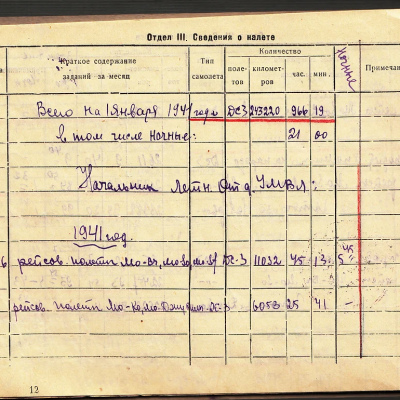 Отдел III. Сведения о налете
Краткое содержание заданий за месяц
Тип самолета
Количество
полетов
километров
час.
мин.
Ночные
Примечан
Всего на 1 января 1941 года ДС3 243220 966 19
в том числе ночные: 21 00
Начальник Летн. Отд. УМВЛ:
1941 год.
рейсов. полеты ДС-3 11032 45 13 5 45
рейсов. полеты ДС-3 6053 25 41 -
12